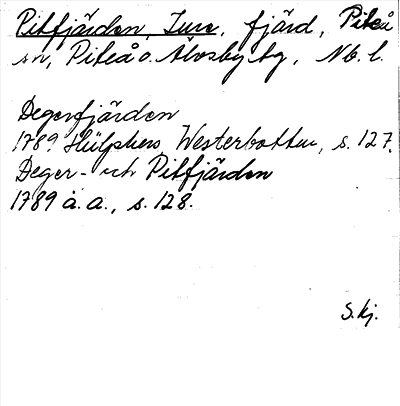 Pitfjärden, Inre, fjärd, Piteå
sn, Piteå o. Älvsby tg, Nb. l.
Degerfjärden
1789 Hülphers Westerbotten, s. 127.
Deger- och Pitfjärden
1789 a. a., s. 128.
S. kj.